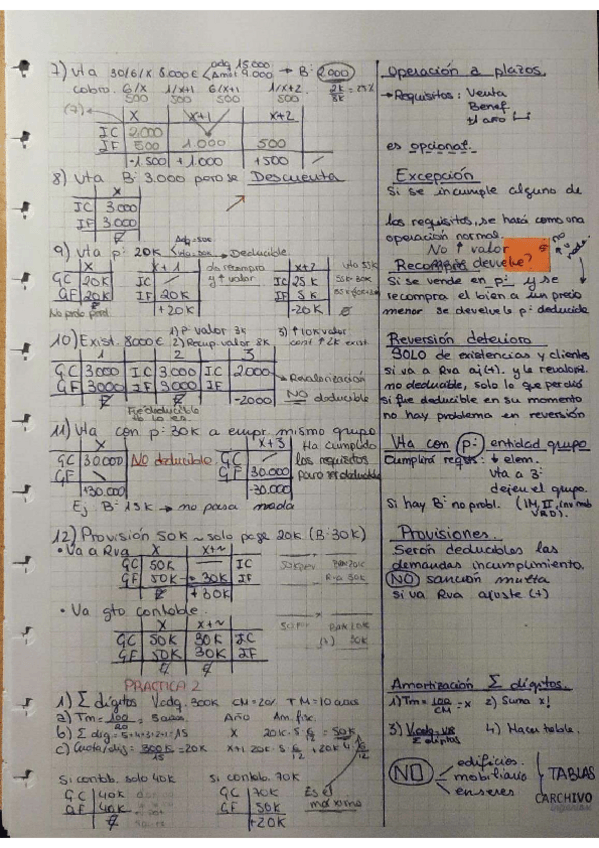 7) Vta 30/6/X 8.000€ adq 15.000 Amort 9.000 → B: 2.000
cobro. 6/X 1/X+1 6/X+1 1/X+2. 2K/8K = 25%
500 500 500 500
(7) X X+1 X+2
IC 2.000
IF 500 1.000 500
-1500 +1000 +500
8) Vta B: 3.000 pero se Descuenta
X
IC 3.000
IF 3.000
9) Vta p: 20K → Deducible
X X+1 da recompra y ↑ valor X+2
GC 20K IC IC 25K
GF 20K IF 20K IF 5K
No prob +20K -20K
10) Exist. 8000€ 1) P valor 3K 3) ↑10K valor
2) Recup. valor 8K cont ↑2K exist
1 2 3
GC 3000 IC 3000 IC 2000 → Revalorización
GF 3000 IF 3000 IF NO deducible
-2000
Fue deducible
11) Vta con p: 30K a empr. mismo grupo
X X+3 Ha cumplido
GC 30.000 No deducible. GC los requisitos
GF GF 30.000 para ser deducible
+30.000 -30.000
Ej B: 15K → no pasa nada
12) Provisión 50K ~ solo paga 20K (B: 30K)
• Va a Rva X X+~
GC 50K IC
GF 50K 30K IF
+30K
• Va gto contable.
X X+~
GC 50K 30K IC
GF 50K 30K IF
PRACTICA 2
1) Σ dígitos Vadq. 300K CM=20% TM=10 años
a) Tm= 100/20 = 5 años. Año Am. fisc.
b) Σ dig = 5+4+3+2+1=15 X 20K·5 6/12 = 50K
c) Cuota/dig = 300K/15 = 20K X+1 20K·5 6/12 + 20K·4 6/12
Si contab. solo 40K Si contab. 70K
GC 40K GC 70K Es el
GF 40K GF 50K máximo
+20K
Operación a plazos.
→ Requisitos: Venta
Benef.
+1 año
es opcional.
Excepción
Si se incumple alguno de
los requisitos, se hará como una
operación normal.
No ↑ valor
Recompra devuelve?
Si se vende en p: y se
recompra el bien a un precio
menor se devuelve la p: deducible
Reversión deterioro
SOLO de existencias y clientes
si va a Rva aj(+). y le revaloriz.
no deducible, solo lo que perdió
si fue deducible en su momento
no hay problema en reversión
Vta con p: entidad grupo
Cumplirá requis: ↓ elem.
Vta a 3º
dejen el grupo.
Si hay B: no probl. (IM, II, inv inmob VRD).
Provisiones.
Serán deducibles las
demandas incumplimiento.
NO sanción multa
si va Rva ajuste (+)
Amortización Σ dígitos.
1) Tm= 100/CM = x 2) Suma x!
3) Vadq-VR/Σ dígitos 4) Hacer tabla.
NO edificios.
mobiliario TABLAS
enseres
CARCHIVO